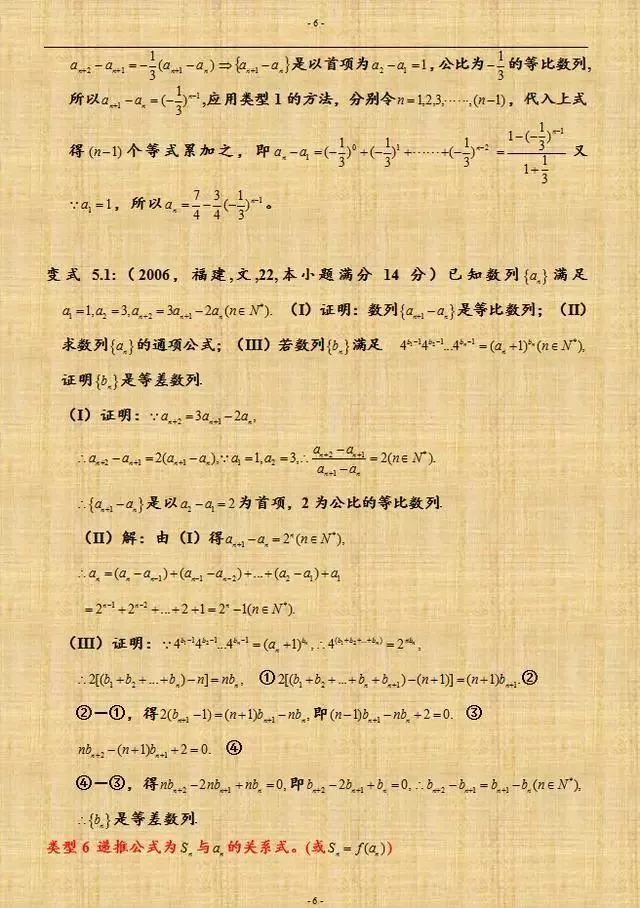 - 6 -
a_{n+2} - a_{n+1} = -\frac{1}{3}(a_{n+1} - a_n) ⇒ {a_{n+1} - a_n}是以首项为a_2 - a_1 = 1，公比为-\frac{1}{3}的等比数列，
所以a_{n+1} - a_n = (-\frac{1}{3})^{n-1},应用类型1的方法，分别令n = 1,2,3,······,(n-1)，代入上式
得(n-1)个等式累加之，即a_n - a_1 = (-\frac{1}{3})^0 + (-\frac{1}{3})^1 + ······ + (-\frac{1}{3})^{n-2} = \frac{1-(-\frac{1}{3})^{n-1}}{1+\frac{1}{3}} 又
∵a_1 = 1，所以a_n = \frac{7}{4} - \frac{3}{4}(-\frac{1}{3})^{n-1}。
变式 5.1:（2006，福建,文,22,本小题满分 14 分）已知数列{a_n}满足
a_1 = 1, a_2 = 3, a_{n+2} = 3a_{n+1} - 2a_n (n∈N^*). （I）证明：数列{a_{n+1} - a_n}是等比数列；（II）
求数列{a_n}的通项公式；（III）若数列{b_n}满足 4^{b_1-1}4^{b_2-1}...4^{b_n-1} = (a_n + 1)^{b_n} (n∈N^*),
证明{b_n}是等差数列.
（I）证明：∵a_{n+2} = 3a_{n+1} - 2a_n,
∴a_{n+2} - a_{n+1} = 2(a_{n+1} - a_n),∵a_1 = 1, a_2 = 3,∴\frac{a_{n+2} - a_{n+1}}{a_{n+1} - a_n} = 2(n∈N^*).
∴{a_{n+1} - a_n}是以a_2 - a_1 = 2为首项，2为公比的等比数列.
（II）解：由（I）得a_{n+1} - a_n = 2^n (n∈N^*),
∴a_n = (a_n - a_{n-1}) + (a_{n-1} - a_{n-2}) + ... + (a_2 - a_1) + a_1
= 2^{n-1} + 2^{n-2} + ... + 2 + 1 = 2^n - 1(n∈N^*).
（III）证明：∵4^{b_1-1}4^{b_2-1}...4^{b_n-1} = (a_n + 1)^{b_n},∴4^{(b_1+b_2+...+b_n)} = 2^{nb_n},
∴2[(b_1 + b_2 + ... + b_n) - n] = nb_n, ①2[(b_1 + b_2 + ... + b_n + b_{n+1}) - (n+1)] = (n+1)b_{n+1}.②
②—①，得2(b_{n+1} - 1) = (n+1)b_{n+1} - nb_n,即(n-1)b_{n+1} - nb_n + 2 = 0. ③
nb_{n+2} - (n+1)b_{n+1} + 2 = 0. ④
④—③，得nb_{n+2} - 2nb_{n+1} + nb_n = 0,即b_{n+2} - 2b_{n+1} + b_n = 0,∴b_{n+2} - b_{n+1} = b_{n+1} - b_n (n∈N^*),
∴{b_n}是等差数列.
类型6 递推公式为S_n与a_n的关系式。(或S_n = f(a_n))
- 6 -